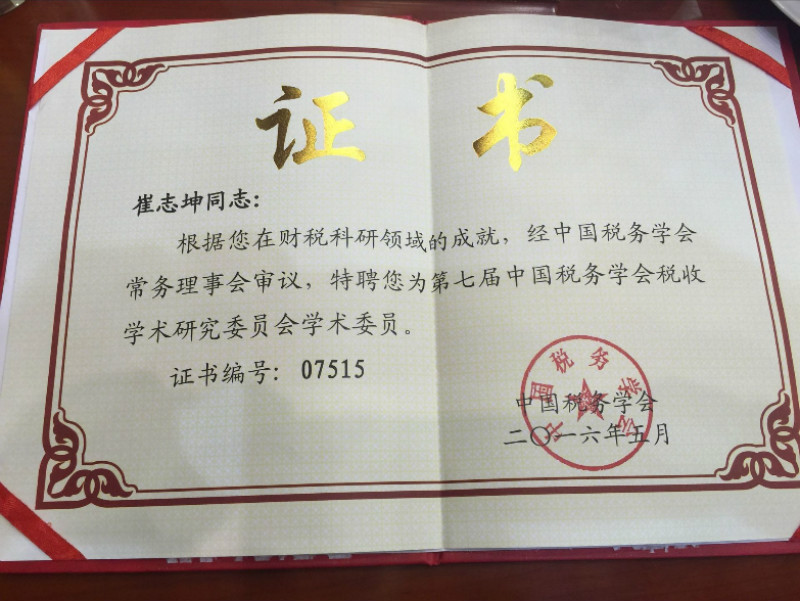 证书
崔志坤同志：
根据您在财税科研领域的成就，经中国税务学会
常务理事会审议，特聘您为第七届中国税务学会税收
学术研究委员会学术委员。
证书编号：07515
中国税务学会
中国税务学会
二〇一六年五月